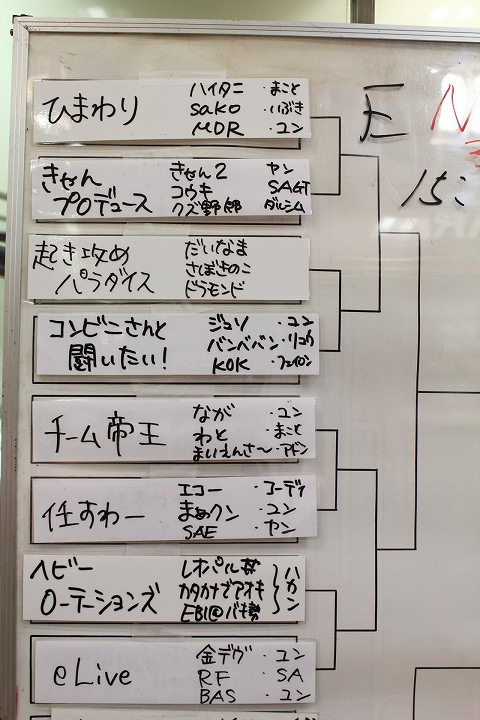 ひまわり
ハイタニ ・まこと
sako ・いぶき
MOR ・ユン
きゃん
プロデュース
きゃん2 ヤン
コウキ SAGAT
クズ野郎 ダルシム
起き攻め
パラダイス
だいなま
さぼさのこ
ドラモンド
コンビニさんと
闘いたい!
ジョソ ・ユン
バンベバン・リュウ
KOK ・フェイロン
チーム帝王
なが ・ユン
わと ・まこと
まいえんさ〜 ・アドン
任すわー
エコー ・コーディ
まめクン ・ユン
SAE ・ヤン
ヘビー
ローテーションズ
レオパル
カタカナでアオキ
EBI@バキ勢
ハカン
eLive
金デヴ ・ユン
RF ・SA
BAS ・ユン
E
15: